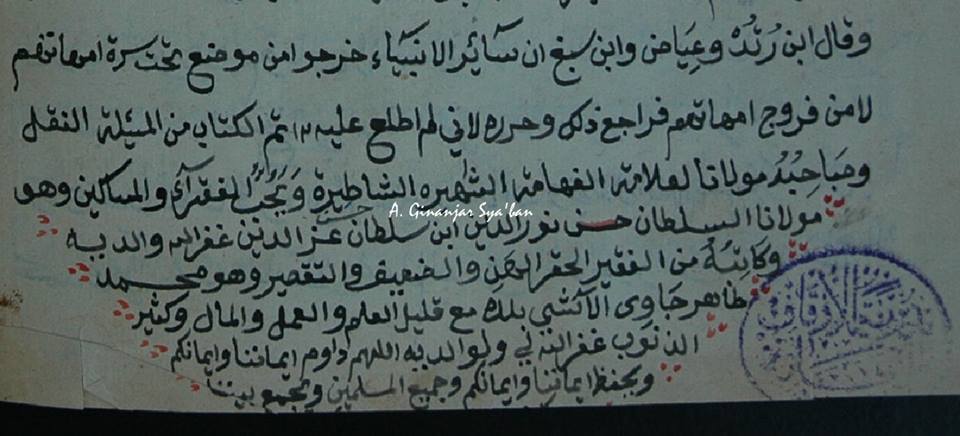 وقال ابن رُشدْ وعِياض وابن سبع ان سَائر الانبيَاء خرجوا من موضع تحت سرة امهاتهم
لا من فروج امهاتهم فراجع ذلك وحرره لاني لم اطلع عليه تم الكتاب من المسئلة النقل
وصَاحبُهُ مولانا العلامة الفهامة الشهيره الشاطيرة وَيُحِبُّ الفقراءَ والمساكين وهو
A. Ginanjar Sya'ban
مولانا السلطان حسن نور الدين ابن سلطان عز الدين غفر الله والديه
وكَاتِبُهُ من الفقير الحقير والضعيف والتقصير وهو محمد
طاهر جَاوى الآشى بلده مع قليل العلم والعمل والمال وكثير
الذنوب غفر الله لي ولوالديه اللهم داوم ايماننا وايمانكم
ويحفظ ايماننا وايمانكم وجميع المسلمين ويجمع بيننا